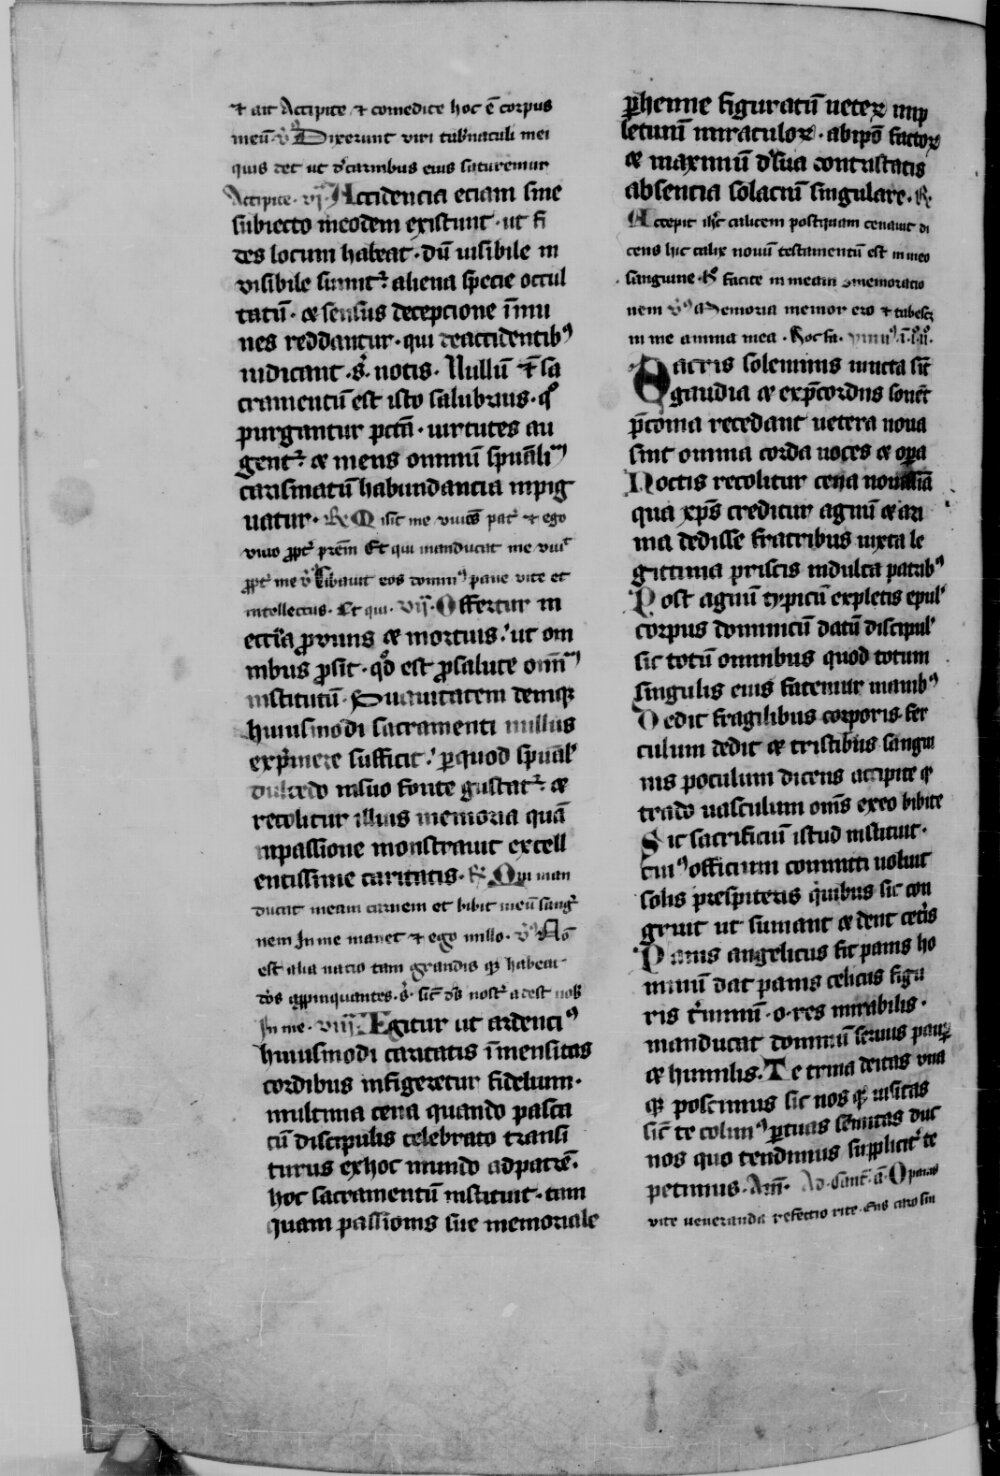 ⁊ ait Accipite ⁊ comedite hoc ē corpus
meū. v̄ Dixerunt viri tab̄naculi mei
quis det ut d'carnibus eius saturemur
Accipite. vj. Accidencia eciam sine
subiecto ineodem existunt. ut fi
des locum habeat. dū visibile in
visibile sumit᷑ aliena specie occul
tatū. ⁊ sensus decepcione īmu
nes reddantur. qui deaccidentibꝰ
iudicant. s'. notis. Nullū ⁊ sa
cramentū est isto salubrius. qͦ
purgantur pctā. virtutes au
gent᷑ ⁊ mens omniū spūaliū
carismatū habundancia inpig
uatur. R̄ Misit me viuēs pat᷑ ⁊ ego
viuo ꝓpt᷑ prēm Et qui manducat me viuit
ꝓpt᷑ me v̄ Cibauit eos dominꝰ pane vite et
intellectus. Et qui. vij. Offertur in
eccl'ia ꝓ viuis ⁊ mortuis. ut om
nibus ꝓsit. qd̊ est ꝓsalute om̄iū
institutū. Suauitatem deniqꝫ
huiusmodi sacramenti nullus
exp'mere sufficit. ꝑquod spūal'
dulcedo insuo fonte gustat᷑ ⁊
recolitur illius memoria quā
inpassione monstrauit excell
entissime caritatis. R̄ Qui man
ducat meam carnem et bibit meū sang'
nem In me manet ⁊ ego in illo. v̄ Nō
est alia nacio tam grandis qꝫ habeat
dōs aꝓpinquantes. s'. sic̄ dš nost᷑ adest nob̄
In me. viij. Egitur ut ardenciꝰ
huiusmodi caritatis īmensitas
cordibus infigeretur fidelium.
inultima cena quando pasca
cū discipulis celebrato transi
turus exhoc mundo adpatrē.
hoc sacramentū instituit. tam
quam passionis sue memoriale
ꝑhenne figuratū veteꝝ imp
letiuū miraculoꝝ. abip̄o factoꝝ
⁊ maximū d'sua contristatis
absencia solaciū singulare. R̄.
Accepit ih̄c calicem postquam cenauit di
cens hic calix nouū testamentū est in meo
sanguine. R̄ facite in meam ꝯmemoratio
nem v̄ Memoria memor ero ⁊ tabesc᷑
in me anima mea. Hoc fa.
Sacris solemniis iuncta sīt
gaudia ⁊ exp̄cordiis sonēt
p̄conia recedant vetera noua
sint omnia corda uoces ⁊ oꝑa
Noctis recolitur cena nouissīa
qua xp̄s creditur agnū ⁊ azi
ma dedisse fratribus iuxta le
gittima priscis indulta patribꝰ
Post agnū typicū expletis epul'
corpus dominicū datū discipul'
sic totū omnibus quod totum
singulis eius fatemur manibꝰ
Dedit fragilibus corporis fer
culum dedit ⁊ tristibus sangui
nis poculum dicens accipite qͦ
trado vasculum om̄s exeo bibite
Sic sacrificiū istud instituit.
cuiꝰ officium committi voluit
solis presbiteris quibus sic con
gruit ut sumant ⁊ dent cet'is
Panis angelicus fit panis ho
minū dat panis celicus figu
ris t'minū. o. res mirabilis.
manducat dominū seruus pauꝑ
⁊ humilis. Te trina deitas una
qꝫ poscimus sic nos qꝫ visitas
sic̄ te colimꝰ ꝑtuas semitas duc
nos quo tendimus supplicit᷑ te
petimus. Am̄. Ad. cant̄. a. O panis
vite veneranda refectio rite.